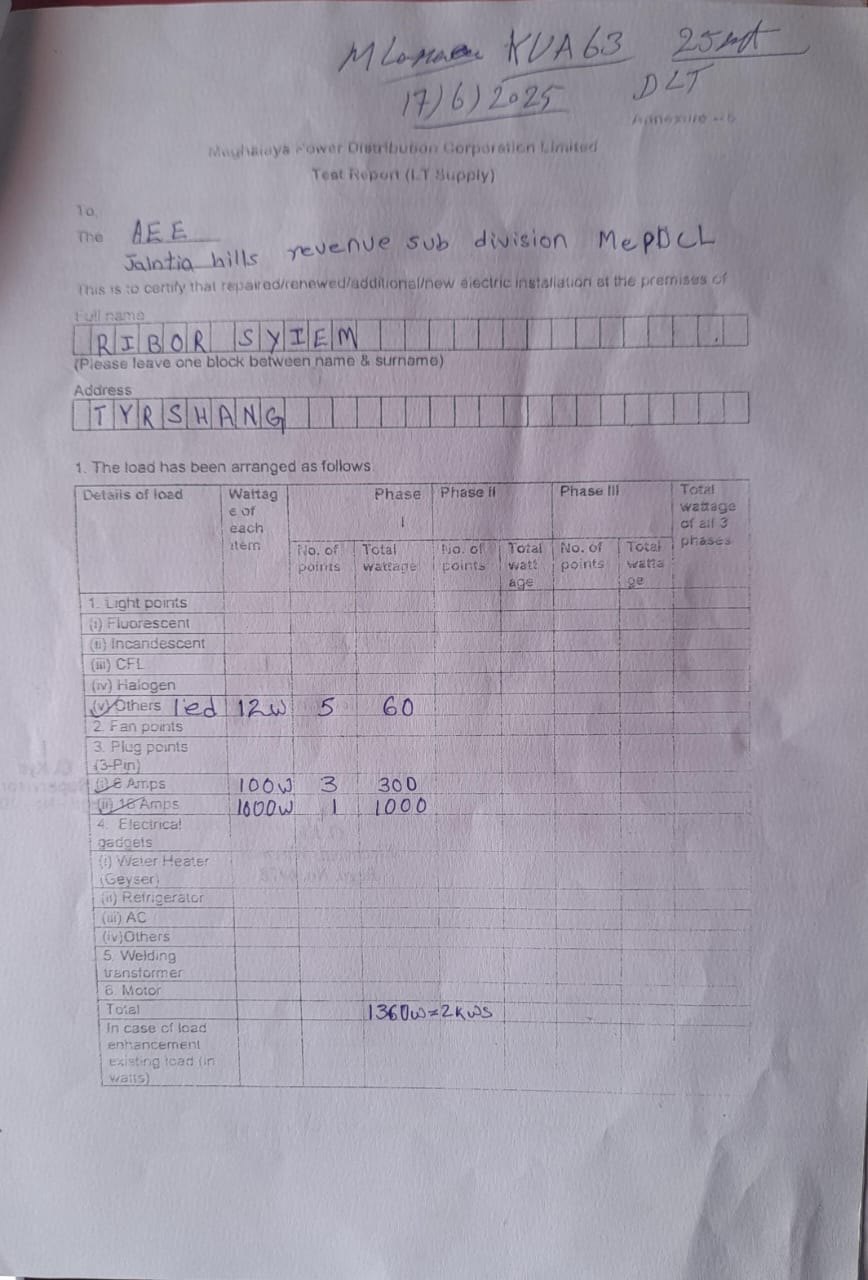 KVA 63 25mt
17/6/2025 DLT
Annexure - 5
Meghalaya Power Distribution Corporation Limited
Test Report (LT Supply)
To,
The AEE
Jaintia hills revenue sub division MePDCL
This is to certify that repaired/renewed/additional/new electric installation at the premises of
Full name
RIBOR SYIEM
(Please leave one block between name & surname)
Address
TYRSHANG
1. The load has been arranged as follows.
Details of load Wattag e of each item Phase I Phase II Phase III Total wattage of all 3 phases
No. of points Total wattage No. of points Total watt age No. of points Total watta ge
1. Light points
(i) Fluorescent
(ii) Incandescent
(iii) CFL
(iv) Halogen
(v) Others led 12W 5 60
2. Fan points
3. Plug points
(3-Pin)
(i) 6 Amps 100W 3 300
(ii) 16 Amps 1000W 1 1000
4. Electrical
gadgets
(i) Water Heater
(Geyser)
(ii) Refrigerator
(iii) AC
(iv)Others
5. Welding
transformer
6. Motor
Total 1360W=2KWS
In case of load
enhancement
existing load (in
watts)